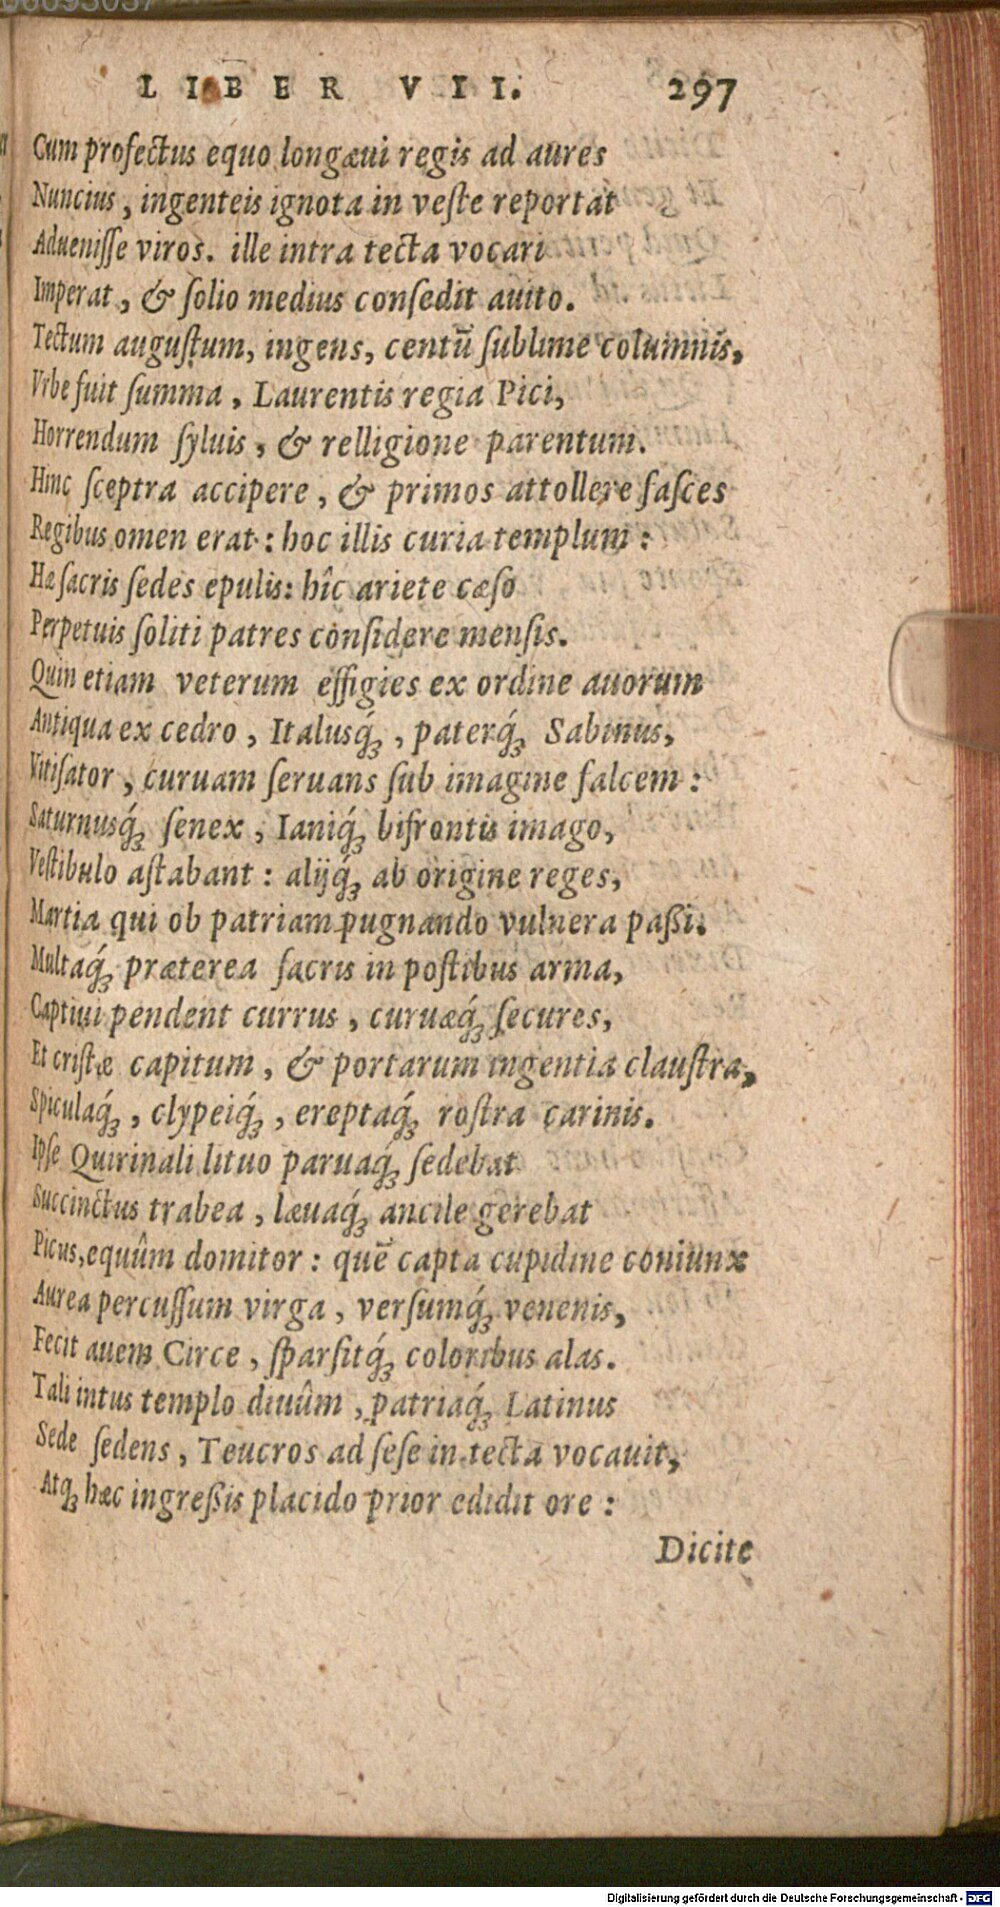 LIBER VII. 297
Cum profectus equo longæui regis ad aures
Nuncius, ingenteis ignota in veſte reportat
Adueniſſe viros. ille intra tecta vocari
Imperat, & ſolio medius conſedit auito.
Tectum auguſtum, ingens, centū ſublime columnis,
Vrbe fuit ſumma, Laurentis regia Pici,
Horrendum ſyluis, & relligione parentum.
Hinc ſceptra accipere, & primos attollere faſces
Regibus omen erat: hoc illis curia templum:
Hæ ſacris ſedes epulis: hîc ariete cæſo
Perpetuis ſoliti patres conſidere menſis.
Quin etiam veterum effigies ex ordine auorum
Antiqua ex cedro, Italusq́;, paterq́; Sabinus,
Vitiſator, curuam ſeruans ſub imagine falcem:
Saturnusq́; ſenex, Ianiq́; bifrontis imago,
Veſtibulo aſtabant: alijq́; ab origine reges,
Martia qui ob patriam pugnando vulnera paßi.
Multaq́; præterea ſacris in poſtibus arma,
Captiui pendent currus, curuæq́; ſecures,
Et criſtæ capitum, & portarum ingentia clauſtra,
Spiculaq́;, clypeiq́;, ereptaq́; roſtra carinis.
Ipſe Quirinali lituo paruaq́; ſedebat
Succinctus trabea, læuaq́; ancile gerebat
Picus, equûm domitor: quē capta cupidine coniunx
Aurea percuſſum virga, verſumq́; venenis,
Fecit auem Circe, ſparſitq́; coloribus alas.
Tali intus templo diuûm, patriaq́; Latinus
Sede ſedens, Teucros ad ſeſe in tecta vocauit,
Atq; hæc ingreßis placido prior edidit ore:
Dicite
Digitalisierung gefördert durch die Deutsche Forschungsgemeinschaft - DFG